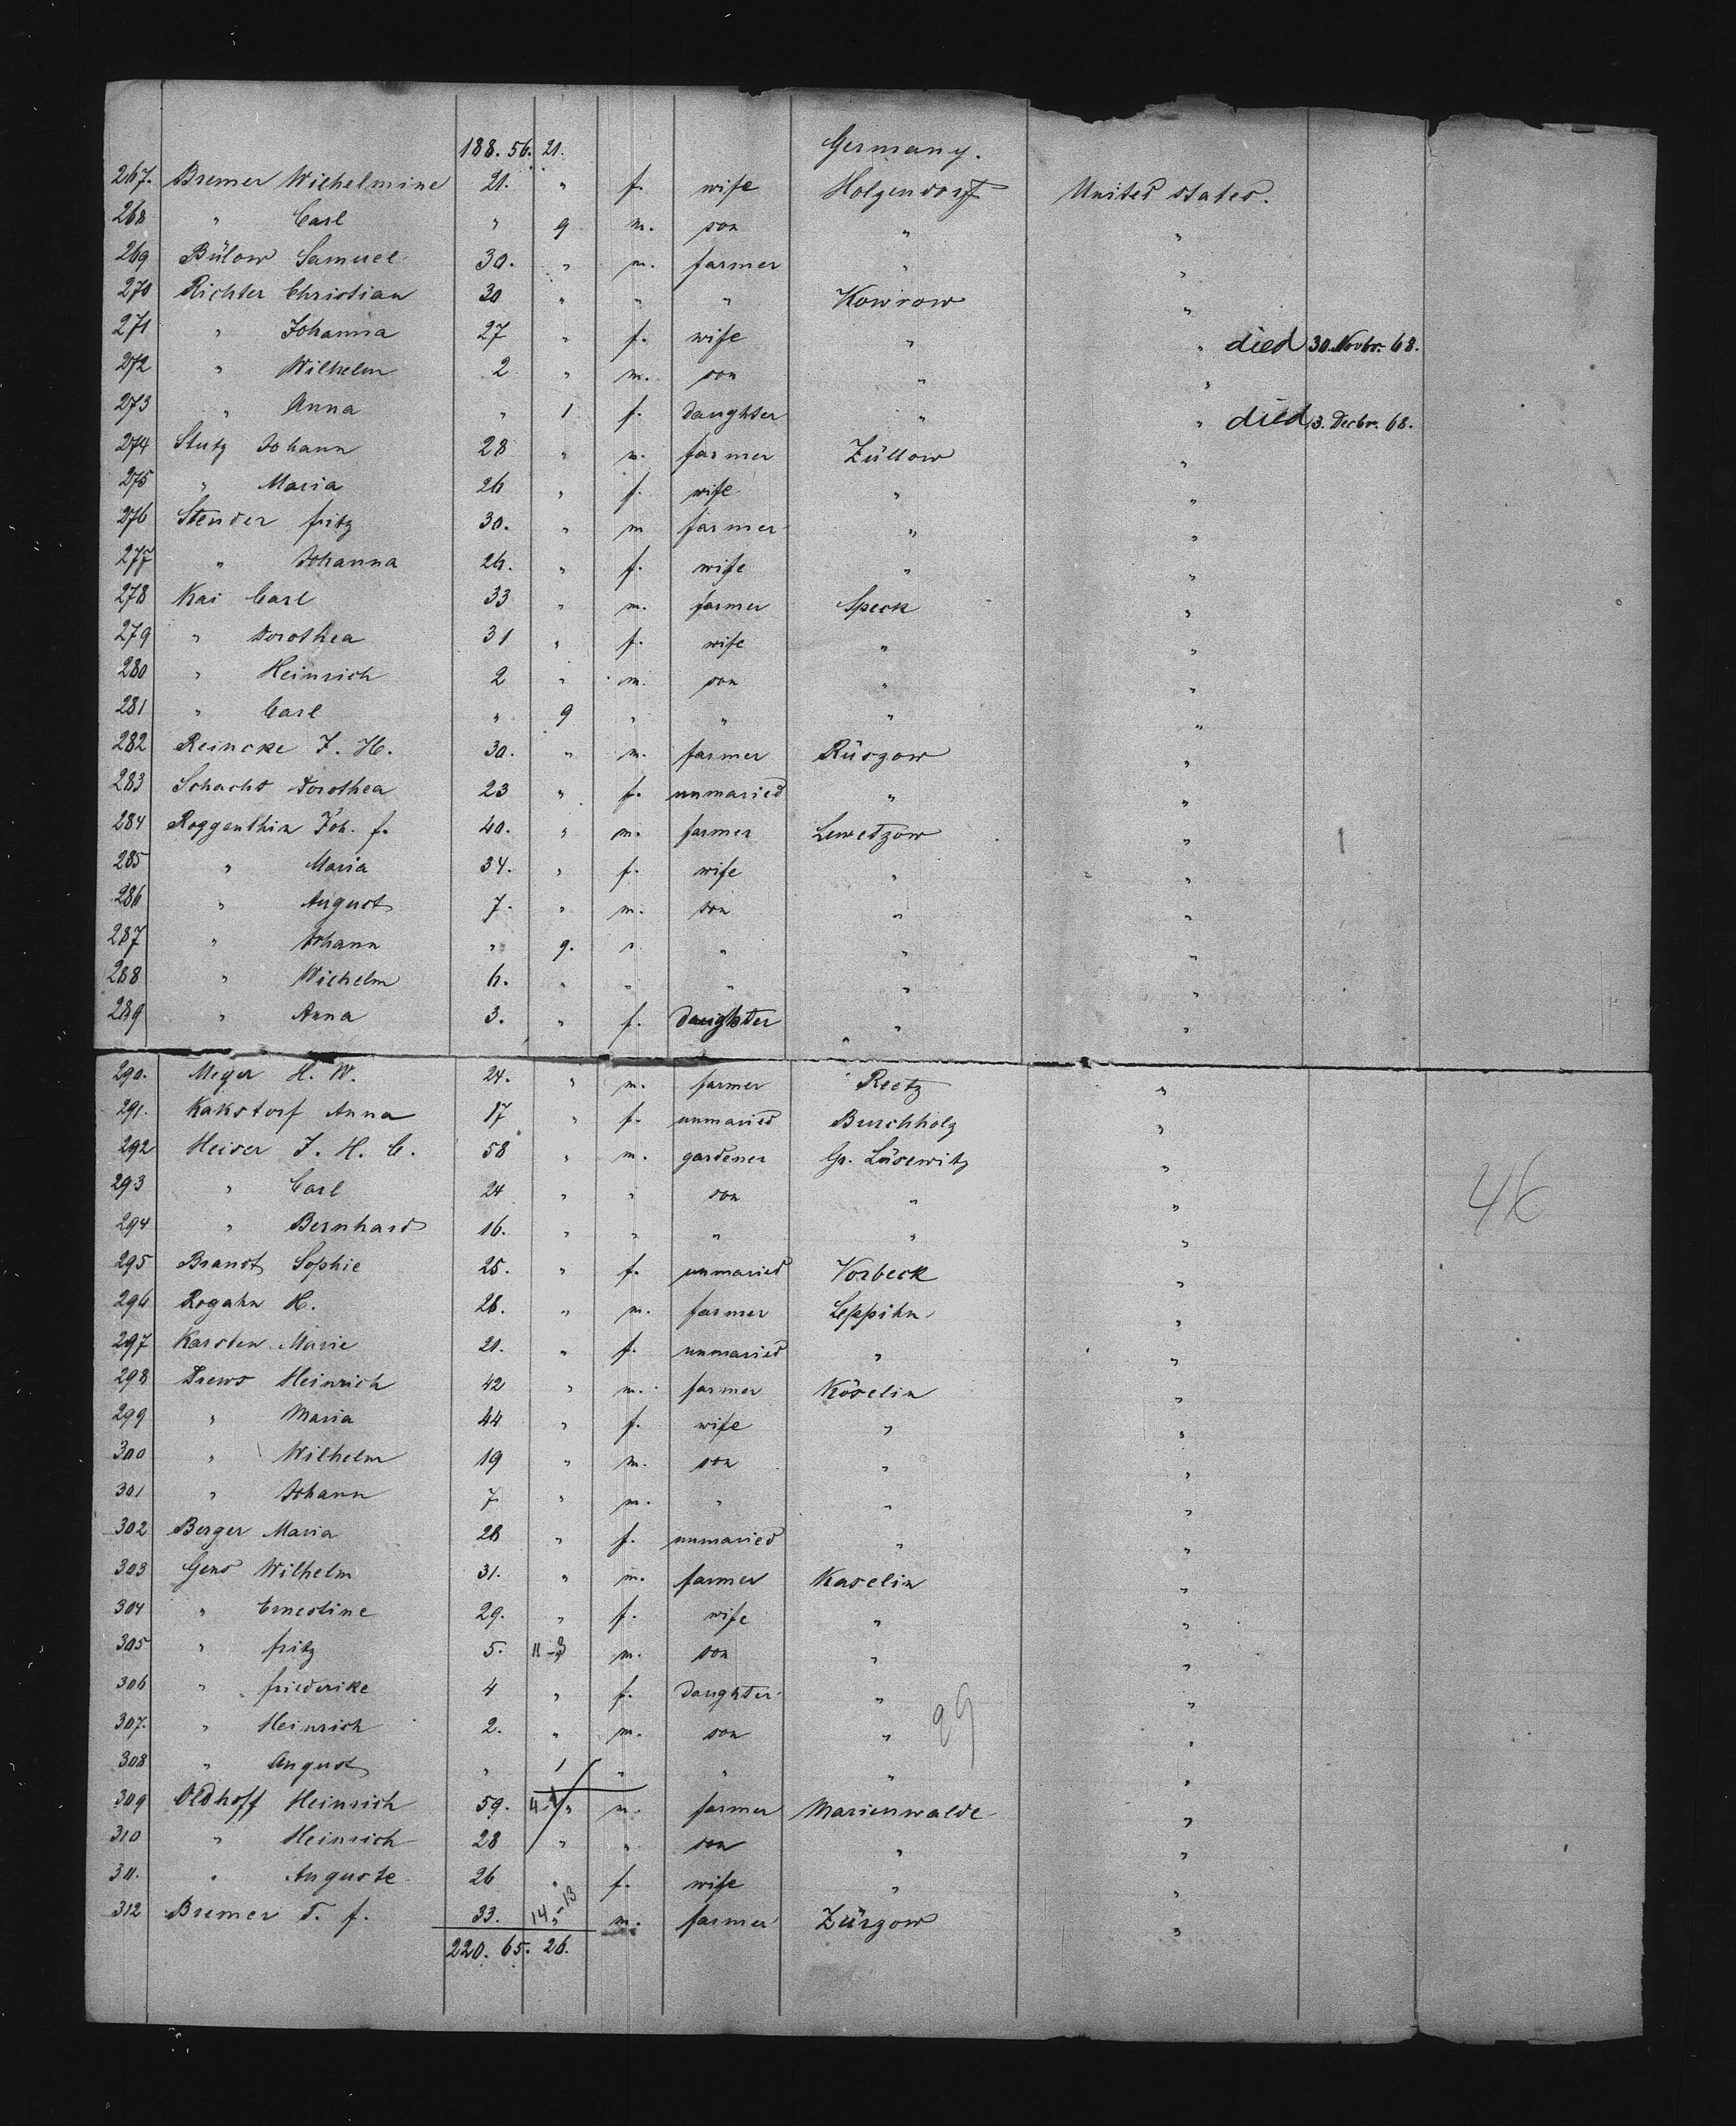 188. 56. 21. Germany.
267. Bremer Wilhelmine 21. " f. wife Holzendorf United States.
268 " Carl " 9 m. son " "
269 Bülow Samuel 30. " m. farmer " "
270 Richter Christian 30 " " " Kowrow "
271 " Johanna 27 " f. wife " " died 30. Novbr. 68.
272 " Wilhelm 2 " m. son " "
273 " Anna " 1 f. daughter " " died 3. Decbr. 68.
274 Stutz Johann 28 " m. farmer Züllow "
275 " Maria 26 " f. wife " "
276 Stender fritz 30. " m farmer " "
277 " Johanna 24. " f. wife " "
278 Kai Carl 33 " m. farmer Speck "
279 " Dorothea 31 " f. wife " "
280 " Heinrich 2 " m. son " "
281 " Carl " 9 " " " "
282 Reincke J. H. 30. " m. farmer Rüszow "
283 Schacht Dorothea 23 " f. unmaried " "
284 Roggenthin Joh. f. 40. " m. farmer Lewetzow "
285 " Maria 34. " f. wife " "
286 " August 7. " m. son " "
287 " Johann " 9. " " " "
288 " Wilhelm 6. " " " " "
289 " Anna 3. " f. daughter " "
290. Meyer H. W. 24. " m. farmer Reetz "
291. Kakstorf Anna 17 " f. unmaried Buchholz "
292 Heiser J. H. C. 58 " m. gardener Gr. Lüsewitz "
293 " Carl 24 " " son " "
46
294 " Bernhard 16. " " " " "
295 Brandt Sophie 25. " f. unmaried Vorbeck "
296 Rogahn H. 28. " m. farmer Leppihn "
297 Karsten Marie 21. " f. unmaried " "
298 Drews Heinrich 42 " m. farmer Köselin "
299 " Maria 44 " f. wife " "
300 " Wilhelm 19 " m. son " "
301 " Johann 7 " m. " " "
302 Berger Maria 28 " f. unmaried " "
303 Gens Wilhelm 31. " m. farmer Kaselin "
304 " Ernestine 29. " f. wife " "
305 " fritz 5. 11-3 m. son " "
306 " friederike 4 " f. daughter " "
307. " Heinrich 2. " m. son " "
29
308 " August " 1 " " " "
309 Oldhoff Heinrich 59. 4-1 " m. farmer Marienwalde "
310 " Heinrich 28 " " son " "
311. " Auguste 26 " f. wife " "
312 Bremer T. f. 33. 14-13 " m. farmer Zürzow "
220. 65. 26.